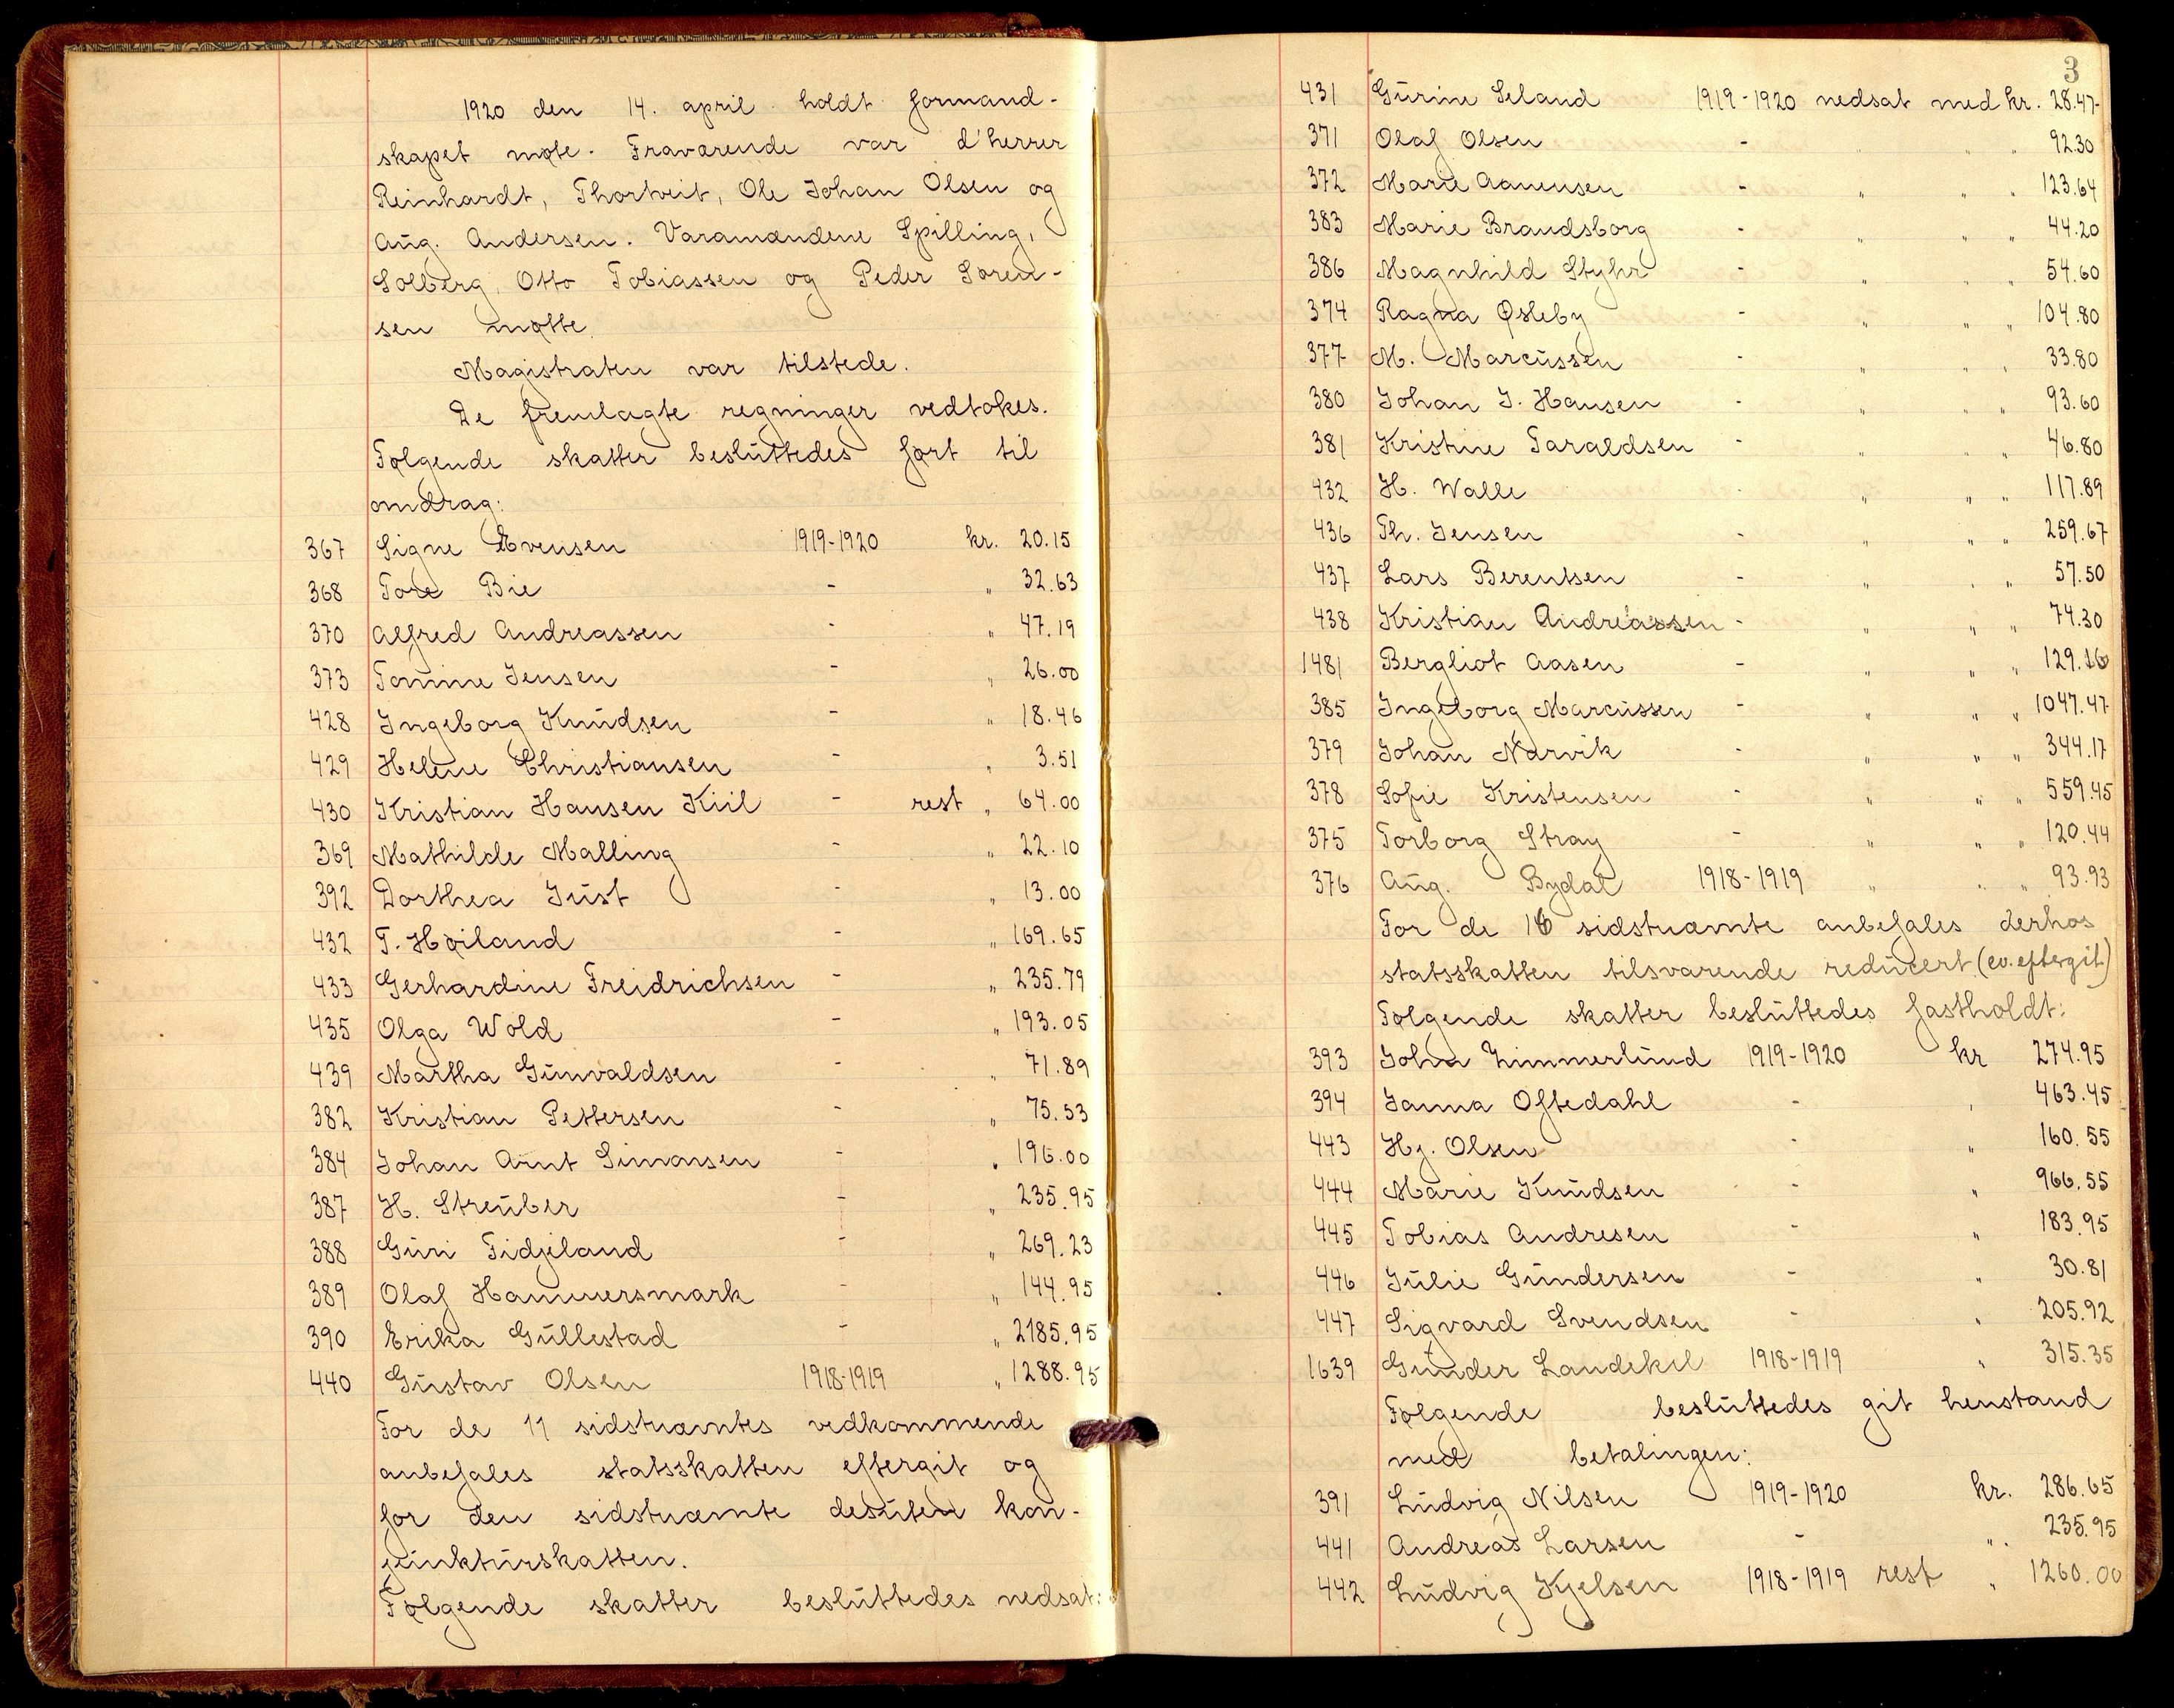 1920 den 14. april holdt formand-
skapet møte. Fraværende var d'herrer
Reinhardt, Thortveit, Ole Johan Olsen og
Aug. Andersen. Varamændene Spilling,
Solberg, Otto Tobiassen og Peder Søren-
sen møtte.
Magistraten var tilstede.
De fremlagte regninger vedtokes.
Følgende skatter besluttedes ført til
omdrag:
367 Signe Evensen 1919-1920 kr. 20.15
368 Tore Bie - " 32.63
370 Alfred Andreassen - " 47.19
373 Tomine Jensen - " 26.00
428 Ingeborg Knudsen - " 18.46
429 Helene Christiansen - " 3.51
430 Kristian Hansen Kiil - rest " 64.00
369 Mathilde Malling - " 22.10
392 Dorthea Just - " 13.00
432 T. Høiland - " 169.65
433 Gerhardine Freidrichsen - " 235.79
435 Olga Wold - " 193.05
439 Martha Gunvaldsen - " 71.89
382 Kristian Pettersen - " 75.53
384 Johan Arnt Simonsen - " 196.00
387 H. Streuber - " 235.95
388 Guri Fidjeland - " 269.23
389 Olaf Hammersmark - " 144.95
390 Erika Gullestad - " 2185.95
440 Gustav Olsen 1918-1919 " 1288.95
For de 11 sidstnævntes vedkommende
anbefales statsskatten eftergit og
for den sidstnævnte desuten kon-
junkturskatten.
Følgende skatter besluttedes nedsat:
3
431 Gurine Seland 1919-1920 nedsat med kr. 28.47
371 Olaf Olsen - " " " 92.30
372 Marie Aanensen - " " " 123.64
383 Marie Brandsborg - " " " 44.20
386 Magnhild Styhr - " " " 54.60
374 Ragna Østeby - " " " 104.80
377 M. Marcussen - " " " 33.80
380 Johan J. Hansen - " " " 93.60
381 Kristine Taraldsen - " " " 46.80
432 H. Walle - " " " 117.89
436 Th. Jensen - " " " 259.67
437 Lars Berentsen - " " " 57.50
438 Kristian Andreassen - " " " 74.30
1481 Bergliot Aasen - " " " 129.16
385 Ingeborg Marcussen - " " " 1047.47
379 Johan Narvik - " " " 344.17
378 Sofie Kristensen - " " " 559.45
375 Torborg Stray - " " " 120.44
376 Aug. Bydal 1918-1919 " " " 93.93
For de 16 sidstnævnte anbefales derhos
statsskatten tilsvarende reducert (ev. eftergit)
Følgende skatter besluttedes fastholdt:
393 John Zimmerlund 1919-1920 kr 274.95
394 Janna Oftedahl - " 463.45
443 Hj. Olsen - " 160.55
444 Marie Knudsen - " 966.55
445 Tobias Andresen - " 183.95
446 Julie Gundersen - " 30.81
447 Sigvard Svendsen - " 205.92
1639 Gunder Landekil 1918-1919 " 315.35
Følgende besluttedes git henstand
med betalingen:
391 Ludvig Nilsen 1919-1920 kr. 286.65
441 Andreas Larsen - " 235.95
442 Ludvig Kjelsen 1918-1919 rest " 1260.00